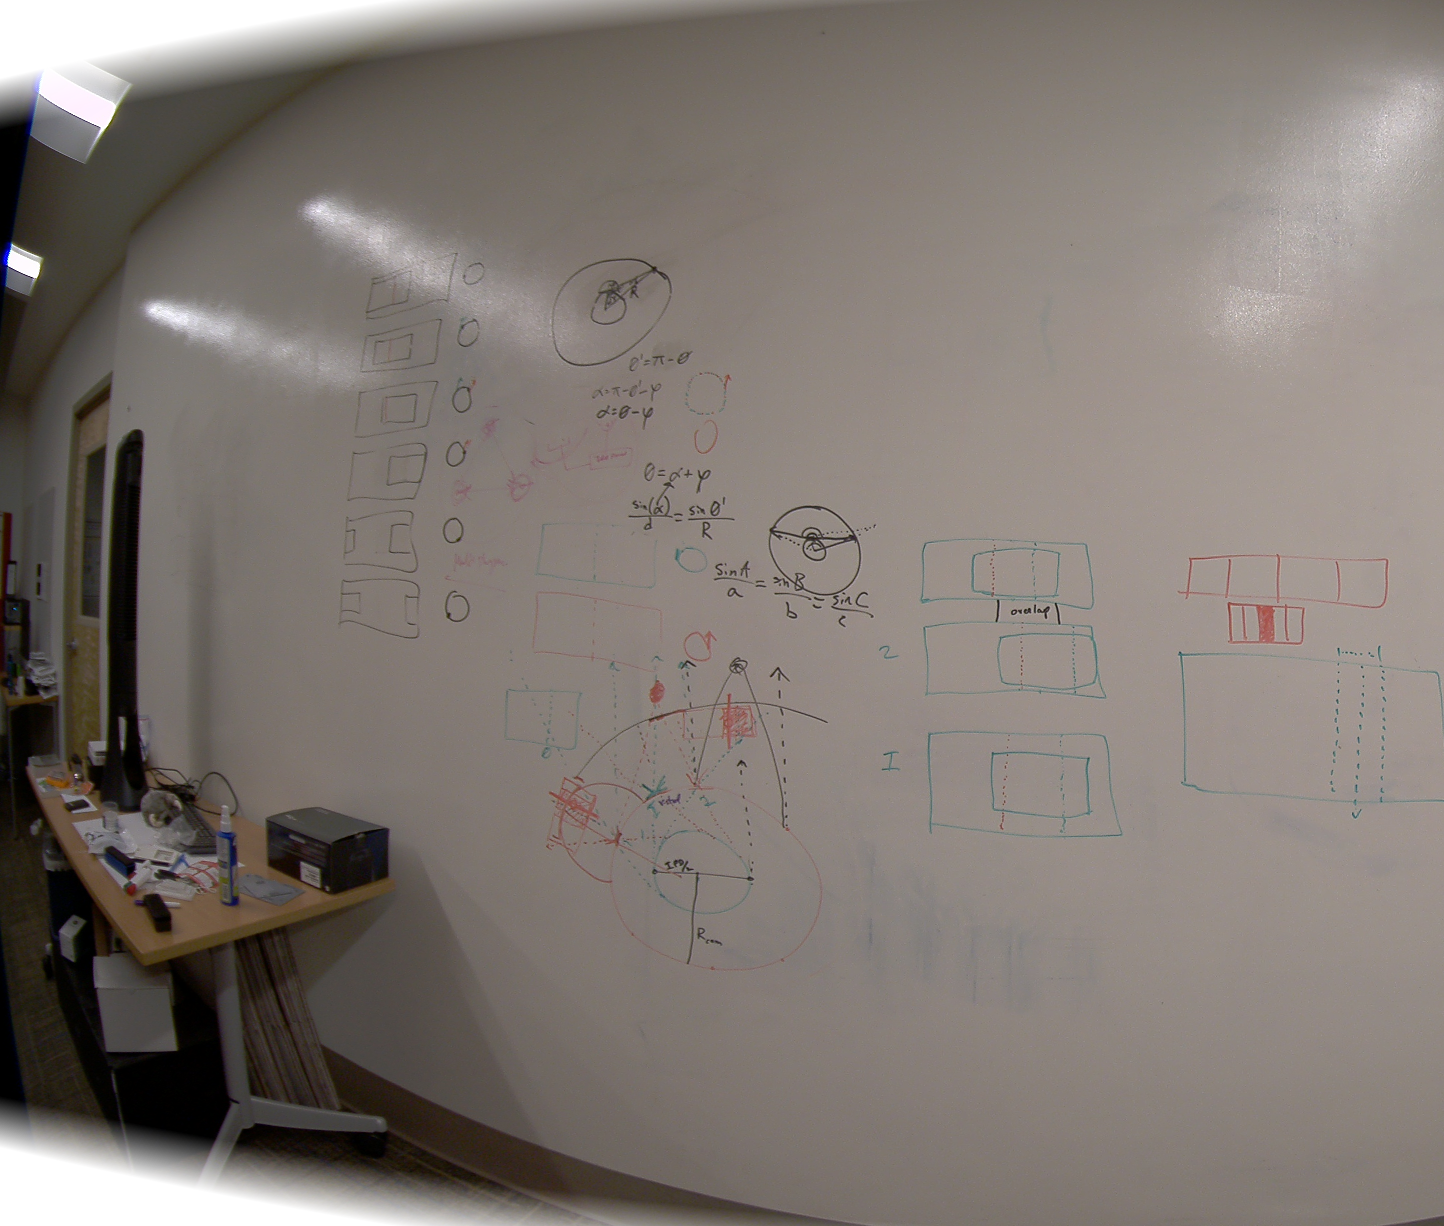 R
θ' = π - θ
α = π - θ' - φ
α = θ - φ
θ = α + φ
sin(α)/d = sin θ'/R
sin A/a = sin B/b = sin C/c
overlap
2
1
I
IPD/2
R_cam